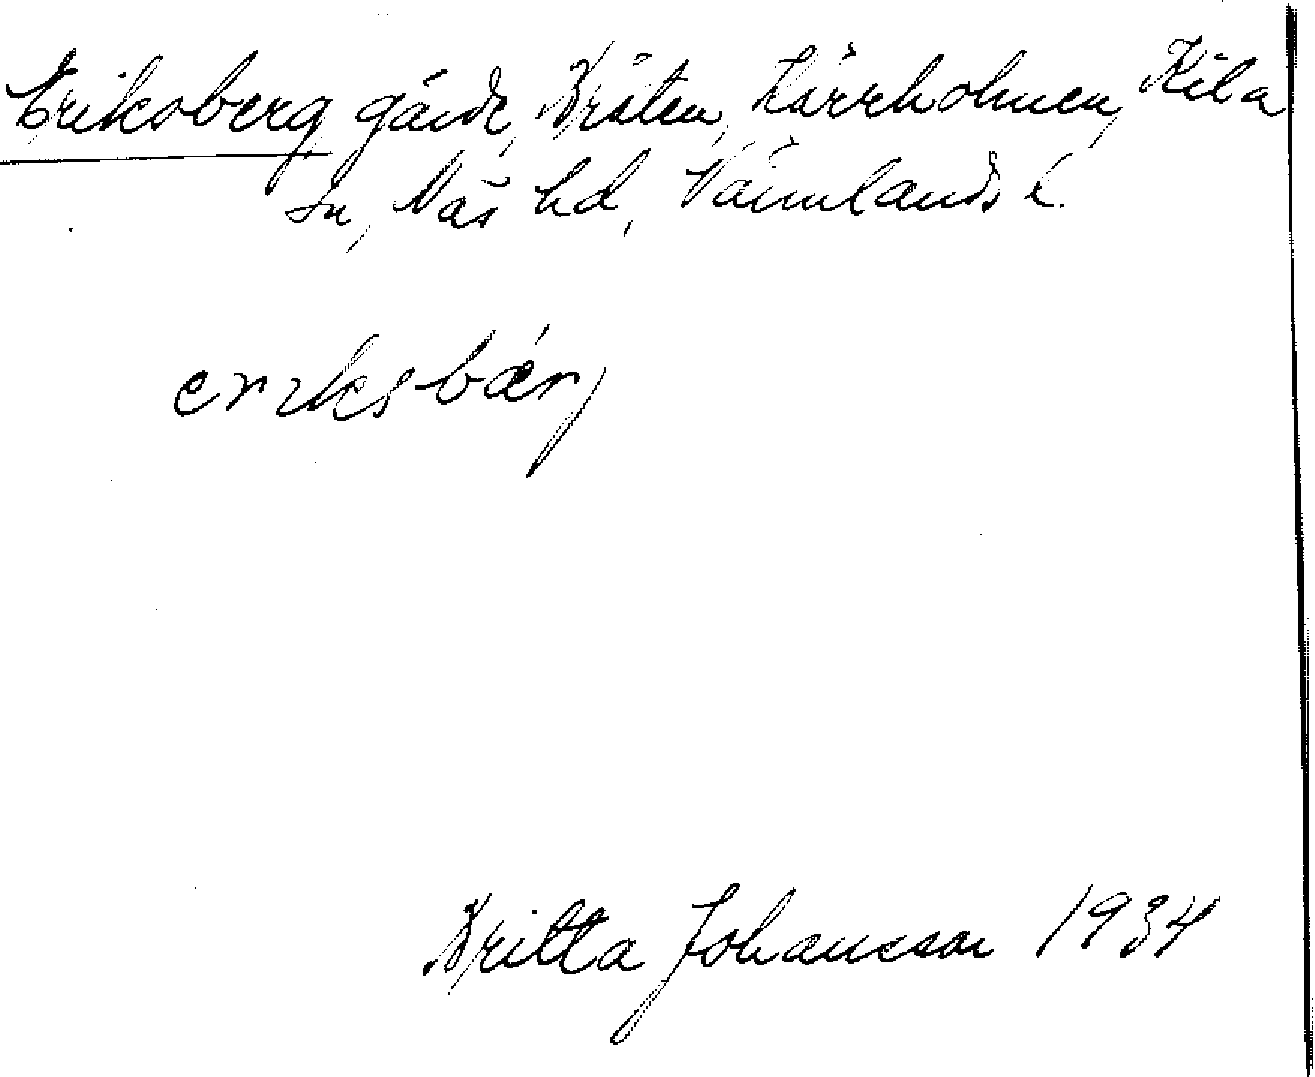 Eriksberg, gärde, Bråten, Kärrholmen, Kila
sn, Näs hd, Värmlands l.
eriksbær
Britta Johansson 1934